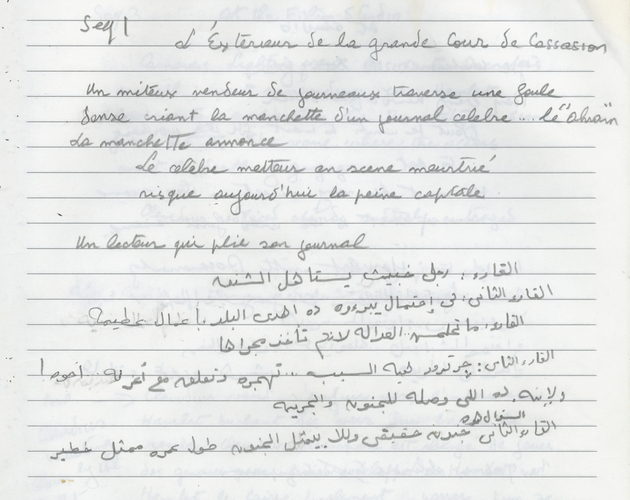 Seq 1
L'Extérieur de la grande Cour de Cassassion
Un miteux vendeur de journeaux traverse une foule
dense criant la manchette d'un journal celebre ... le "Ahram
La manchette annonce
Le celebre metteur en scene meurtrié
risque aujourd'hui la peine capitale
Un lecteur qui plie son journal
القارىء: رجل خبيث يستاهل الشنق
القارىء الثانى: فى إحتمال يبرءوه ده اهدى البلد أعمال عظيمة
القارىء: ما تخلص العدالة لازم تاخد مجراها
القارىء الثانى: جرترود هية السبب .. تهجره وتعلقه مع أخوه !
ولإنه ده اللى وصله للجنون والجريمة
السؤال ده
القارىء الثانى جنونه حقيقى ولا بيمثل الجنون طول عمره ممثل خطير